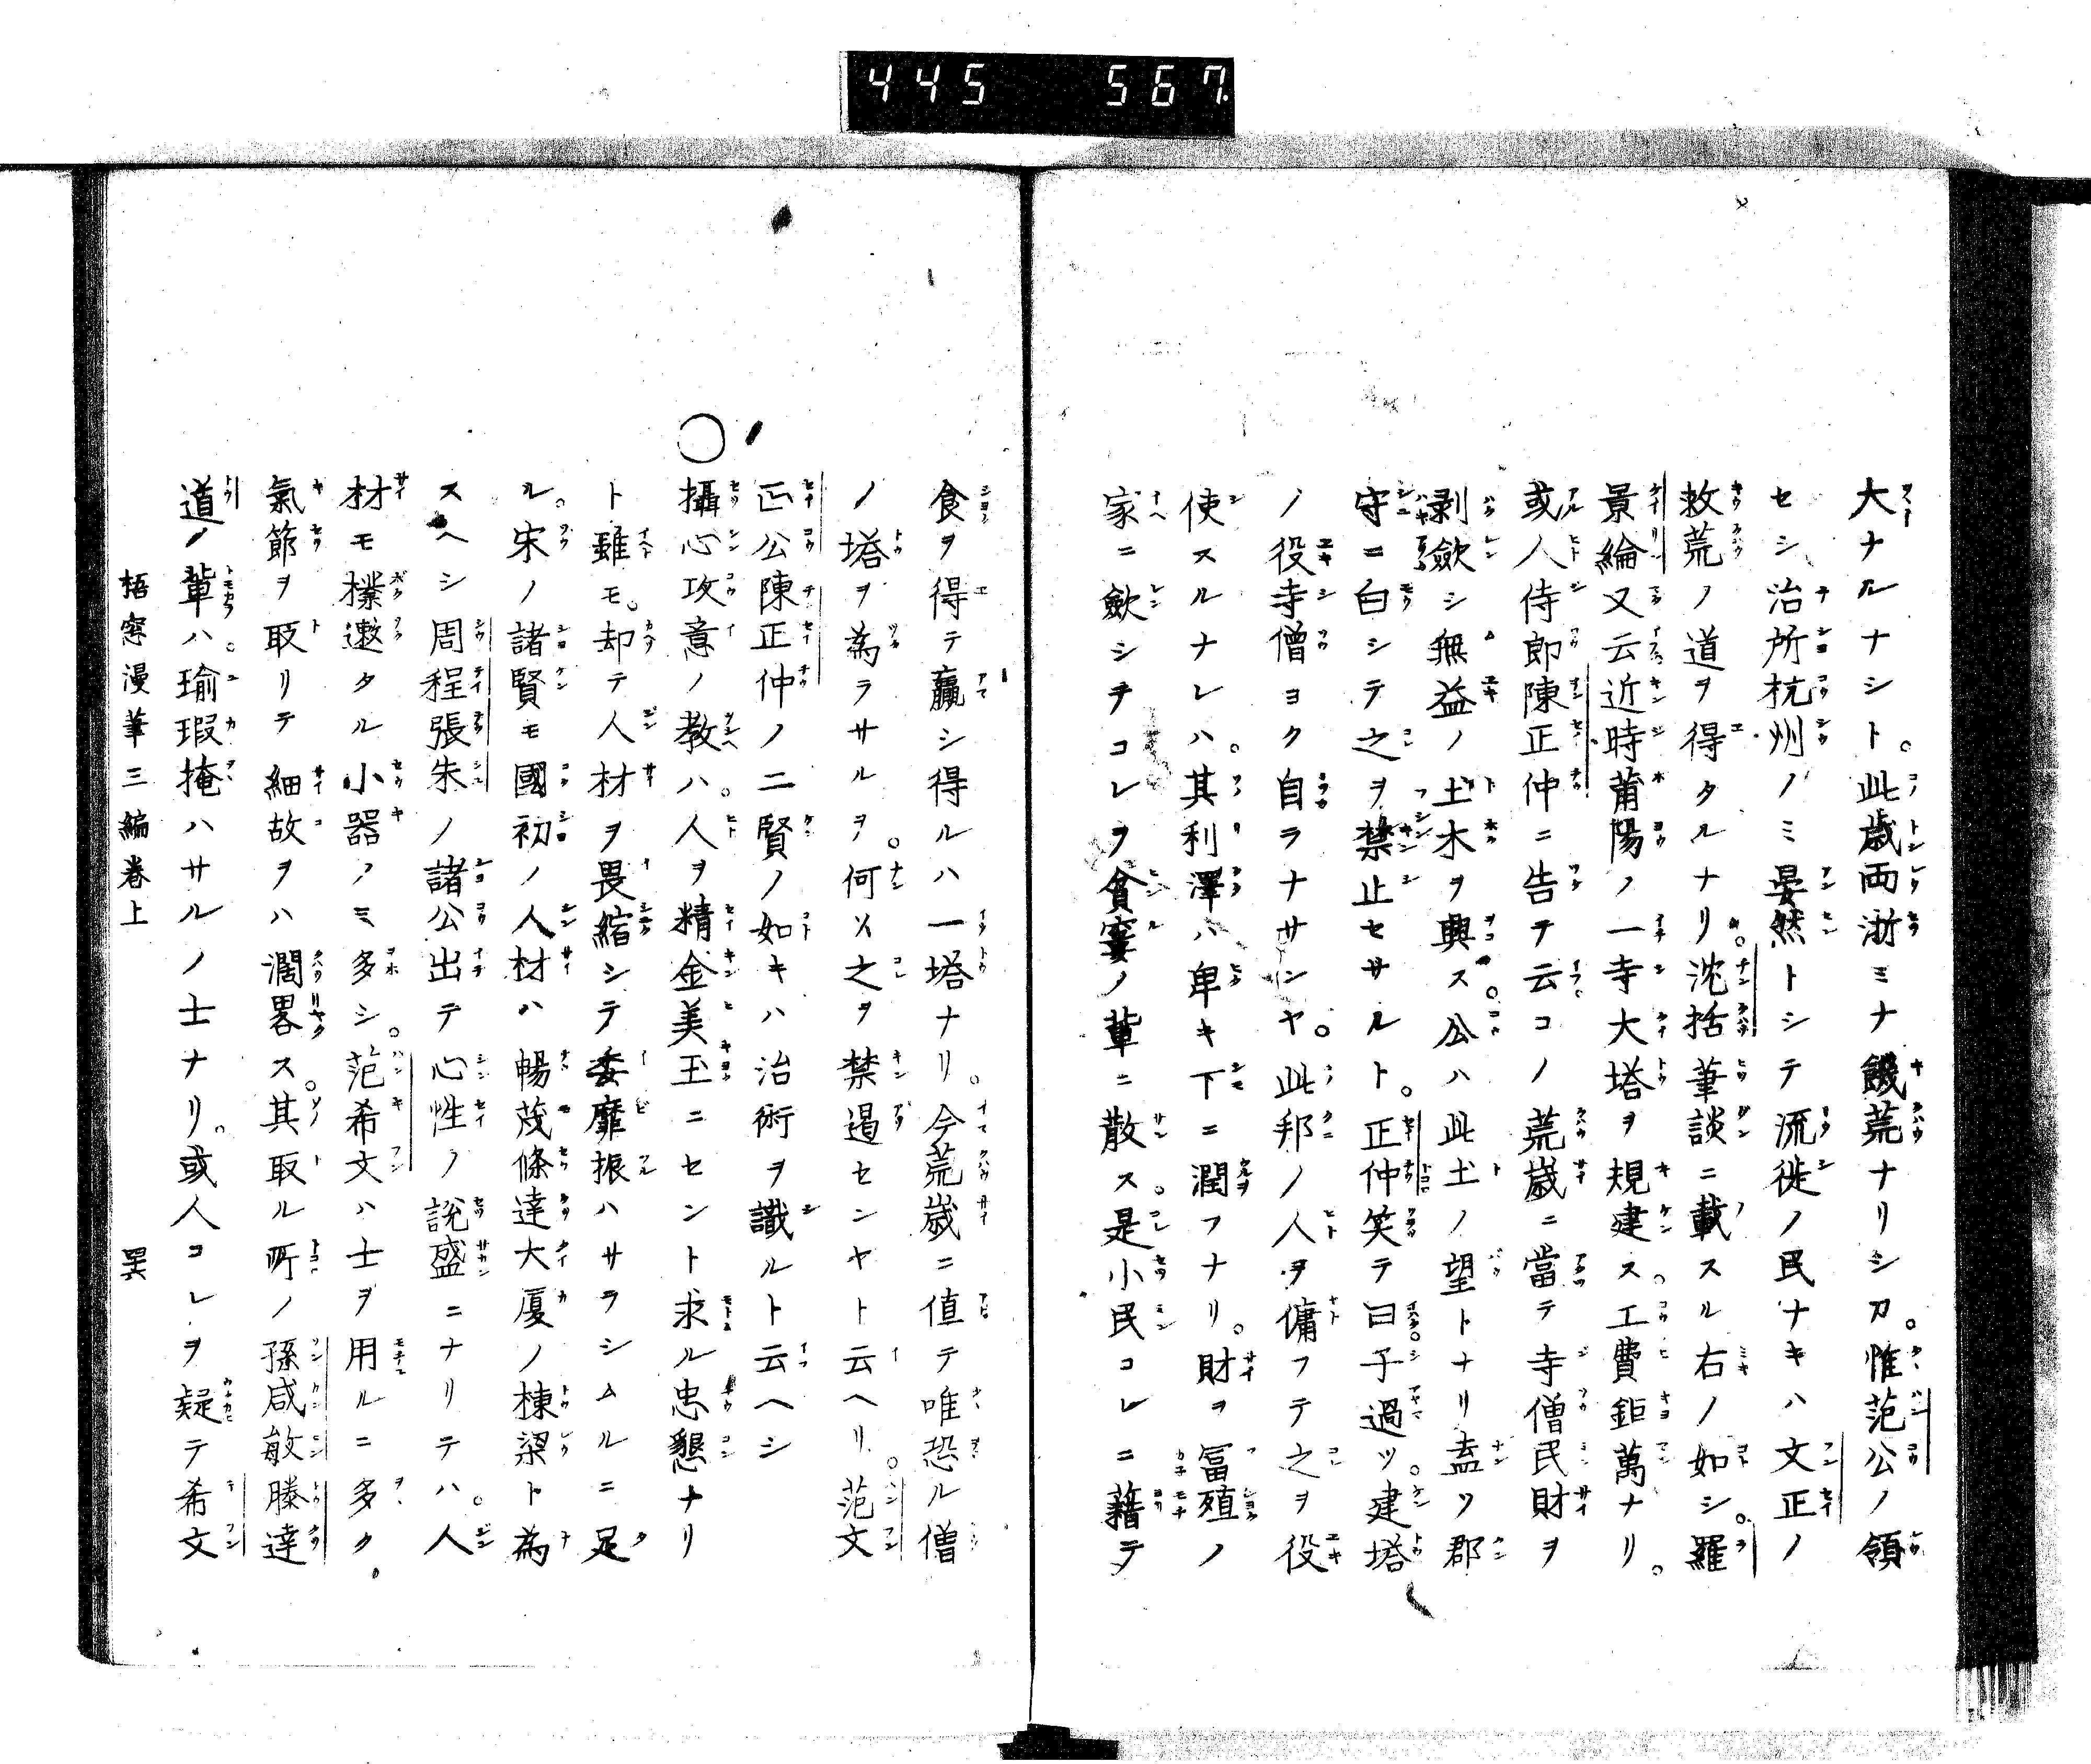 445 567
大ナルナシト。此歳両浙ミナ饑荒ナリシカ。惟范公ノ領
セシ治所杭州ノミ晏然トシテ流徙ノ民ナキハ文正ノ
救荒ノ道ヲ得タルナリ。沈括筆談ニ載スル右ノ如シ。羅
景綸又云近時莆陽ノ一寺大塔ヲ規建ス。工費鉅萬ナリ。
或人侍郎陳正仲ニ告テ云コノ荒歳ニ當テ寺僧民財ヲ
剥歛シ無益ノ土木ヲ興ス。公ハ此土ノ望トナリ盍ツ郡
守ニ白シテ之ヲ禁止セサルト。正仲笑テ曰子過ツ。建塔
ノ役寺僧ヨク自ラナサンヤ。此邦ノ人ヲ傭フテ之ヲ役
使スルナレハ。其利澤ハ卑キ下ニ潤フナリ。財ヲ冨殖ノ
家ニ歛シテコレヲ貧窶ノ輩ニ散ス。是小民コレニ藉テ
食ヲ得テ贏シ得ルハ一塔ナリ。今荒歳ニ値テ唯恐ル僧
ノ塔ヲ為ラサルヲ。何以之ヲ禁遏セシヤト云ヘリ。范文
正公陳正仲ノ二賢ノ如キハ治術ヲ識ルト云ヘシ
○攝心攻意ノ教ハ。人ヲ精金美玉ニセント求ル忠懇ナリ
ト雖モ。却テ人材ヲ畏縮シテ委靡振ハサラシムルニ足
ル。宋ノ諸賢モ國初ノ人材ハ暢茂條達大厦ノ棟梁ト為
スヘシ周程張朱ノ諸公出テ心性ノ説盛ニナリテハ。人
材モ樸遫タル小器ノミ多シ。范希文ハ士ヲ用ルニ多ク。
氣節ヲ取リテ細故ヲハ濶畧ス。其取ル所ノ孫咸敏滕達
道ノ輩ハ。瑜瑕掩ハサルノ士ナリ。或人コレヲ疑テ希文
梧窓漫筆三編巻上